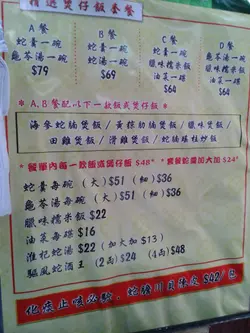 精選煲仔飯套餐
A餐
蛇羹一碗
龜苓湯一碗
$79
B餐
蛇羹一碗
蛇湯一碗
$69
C餐
蛇羹一碗
臘味糯米飯
油菜一碟
$64
D餐
龜苓湯一碗
臘味糯米飯
油菜一碟
$64
* A,B餐配以下一款飯或煲仔飯 *
海參蛇腩煲飯/黃鱔肋腩煲飯/臘味煲飯
/田雞煲飯/滑雞煲飯/蛇腩雞柱砂飯
蛇羹每碗 (大)$51 (細)$36
龜苓湯每碗 (大)$51 (細)$36
臘味糯米飯 $22
油菜每碟 $16
淮杞蛇湯 $22 (加大加 $13)
驅風蛇酒王 (2両)$24 (4両)$48
化痰止咳必驗, 蛇膽川貝陳皮 $42/